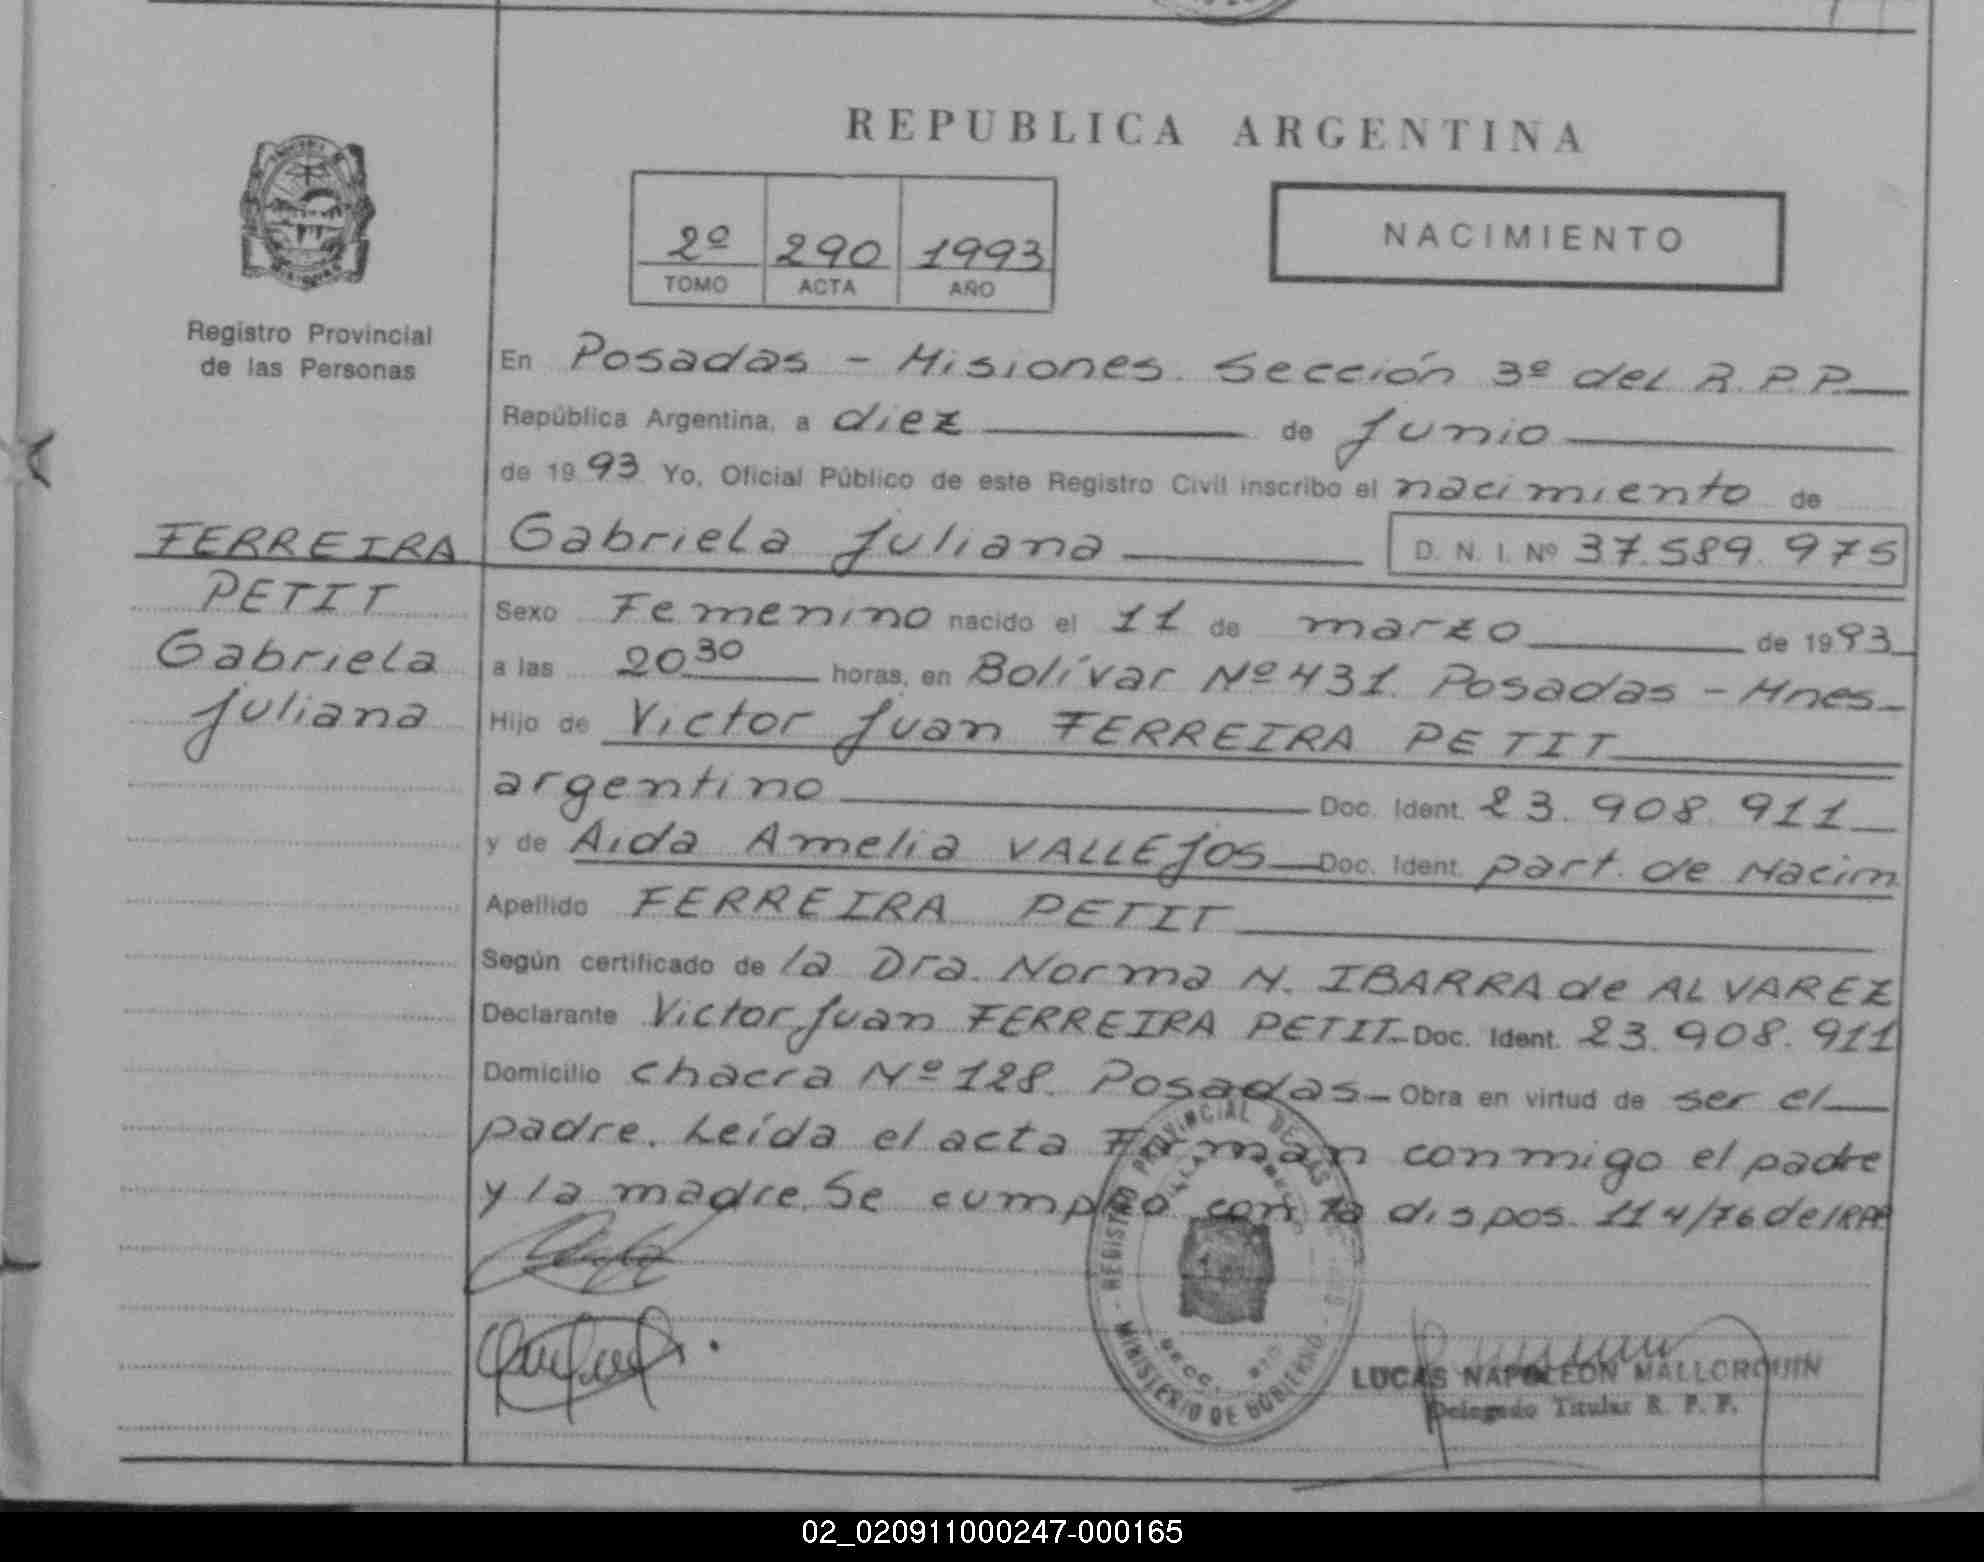 REPUBLICA ARGENTINA
NACIMIENTO
2º 290 1993
TOMO ACTA AÑO
Registro Provincial
de las Personas
En Posadas - Misiones. Sección 3º del R.P.P.
República Argentina, a diez de Junio
de 1993 Yo, Oficial Público de este Registro Civil inscribo el nacimiento de
FERREIRA
PETIT
Gabriela
Juliana
Gabriela Juliana D. N. I. Nº 37.589.975
Sexo Femenino nacido el 11 de marzo de 1993
a las 20 30 horas, en Bolívar Nº 431. Posadas - Mnes
Hijo de Victor Juan FERREIRA PETIT
argentino Doc. Ident. 23.908.911
y de Aida Amelia VALLEJOS Doc. Ident. part. de Nacim
Apellido FERREIRA PETIT
Según certificado de la Dra. Norma N. IBARRA de ALVAREZ
Declarante Victor Juan FERREIRA PETIT Doc. Ident. 23.908.911
Domicilio chacra Nº 128. Posadas Obra en virtud de ser el
padre. Leída el acta Firman conmigo el padre
y la madre. Se cumplió con la dispos. 114/76 del RPP
REGISTRO PROVINCIAL DE LAS
MINISTERIO DE GOBIERNO
LUCAS NAPOLEON MALLORQUIN
Delegado Titular R. P. P.
02_020911000247-000165